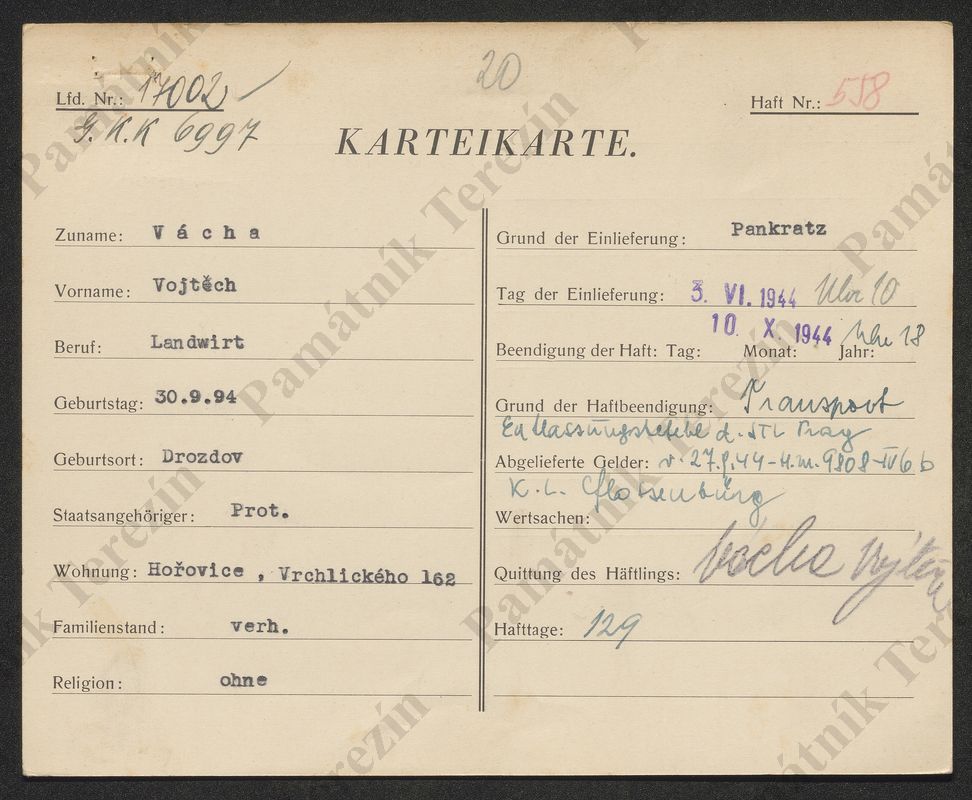 20
Lfd. Nr.: 17002
G.K.K 6997
Haft Nr.: 558
KARTEIKARTE.
Zuname: Vácha
Vorname: Vojtěch
Beruf: Landwirt
Geburtstag: 30.9.94
Geburtsort: Drozdov
Staatsangehöriger: Prot.
Wohnung: Hořovice, Vrchlického 162
Familienstand: verh.
Religion: ohne
Grund der Einlieferung: Pankratz
Tag der Einlieferung: 3. VI. 1944 Uhr 10
10. X. 1944 Uhr 18
Beendigung der Haft: Tag: Monat: Jahr:
Grund der Haftbeendigung: Transport
Entlassungsbefehl d. STL Prag
Abgelieferte Gelder: v. 27.9.44 - H.m. 9808-IV6b
K.L. Flossenbürg
Wertsachen:
Quittung des Häftlings: Vácha Vojtěch
Hafttage: 129
Památník Terezín
Památník Terezín
Památník Terezín
Památník Terezín